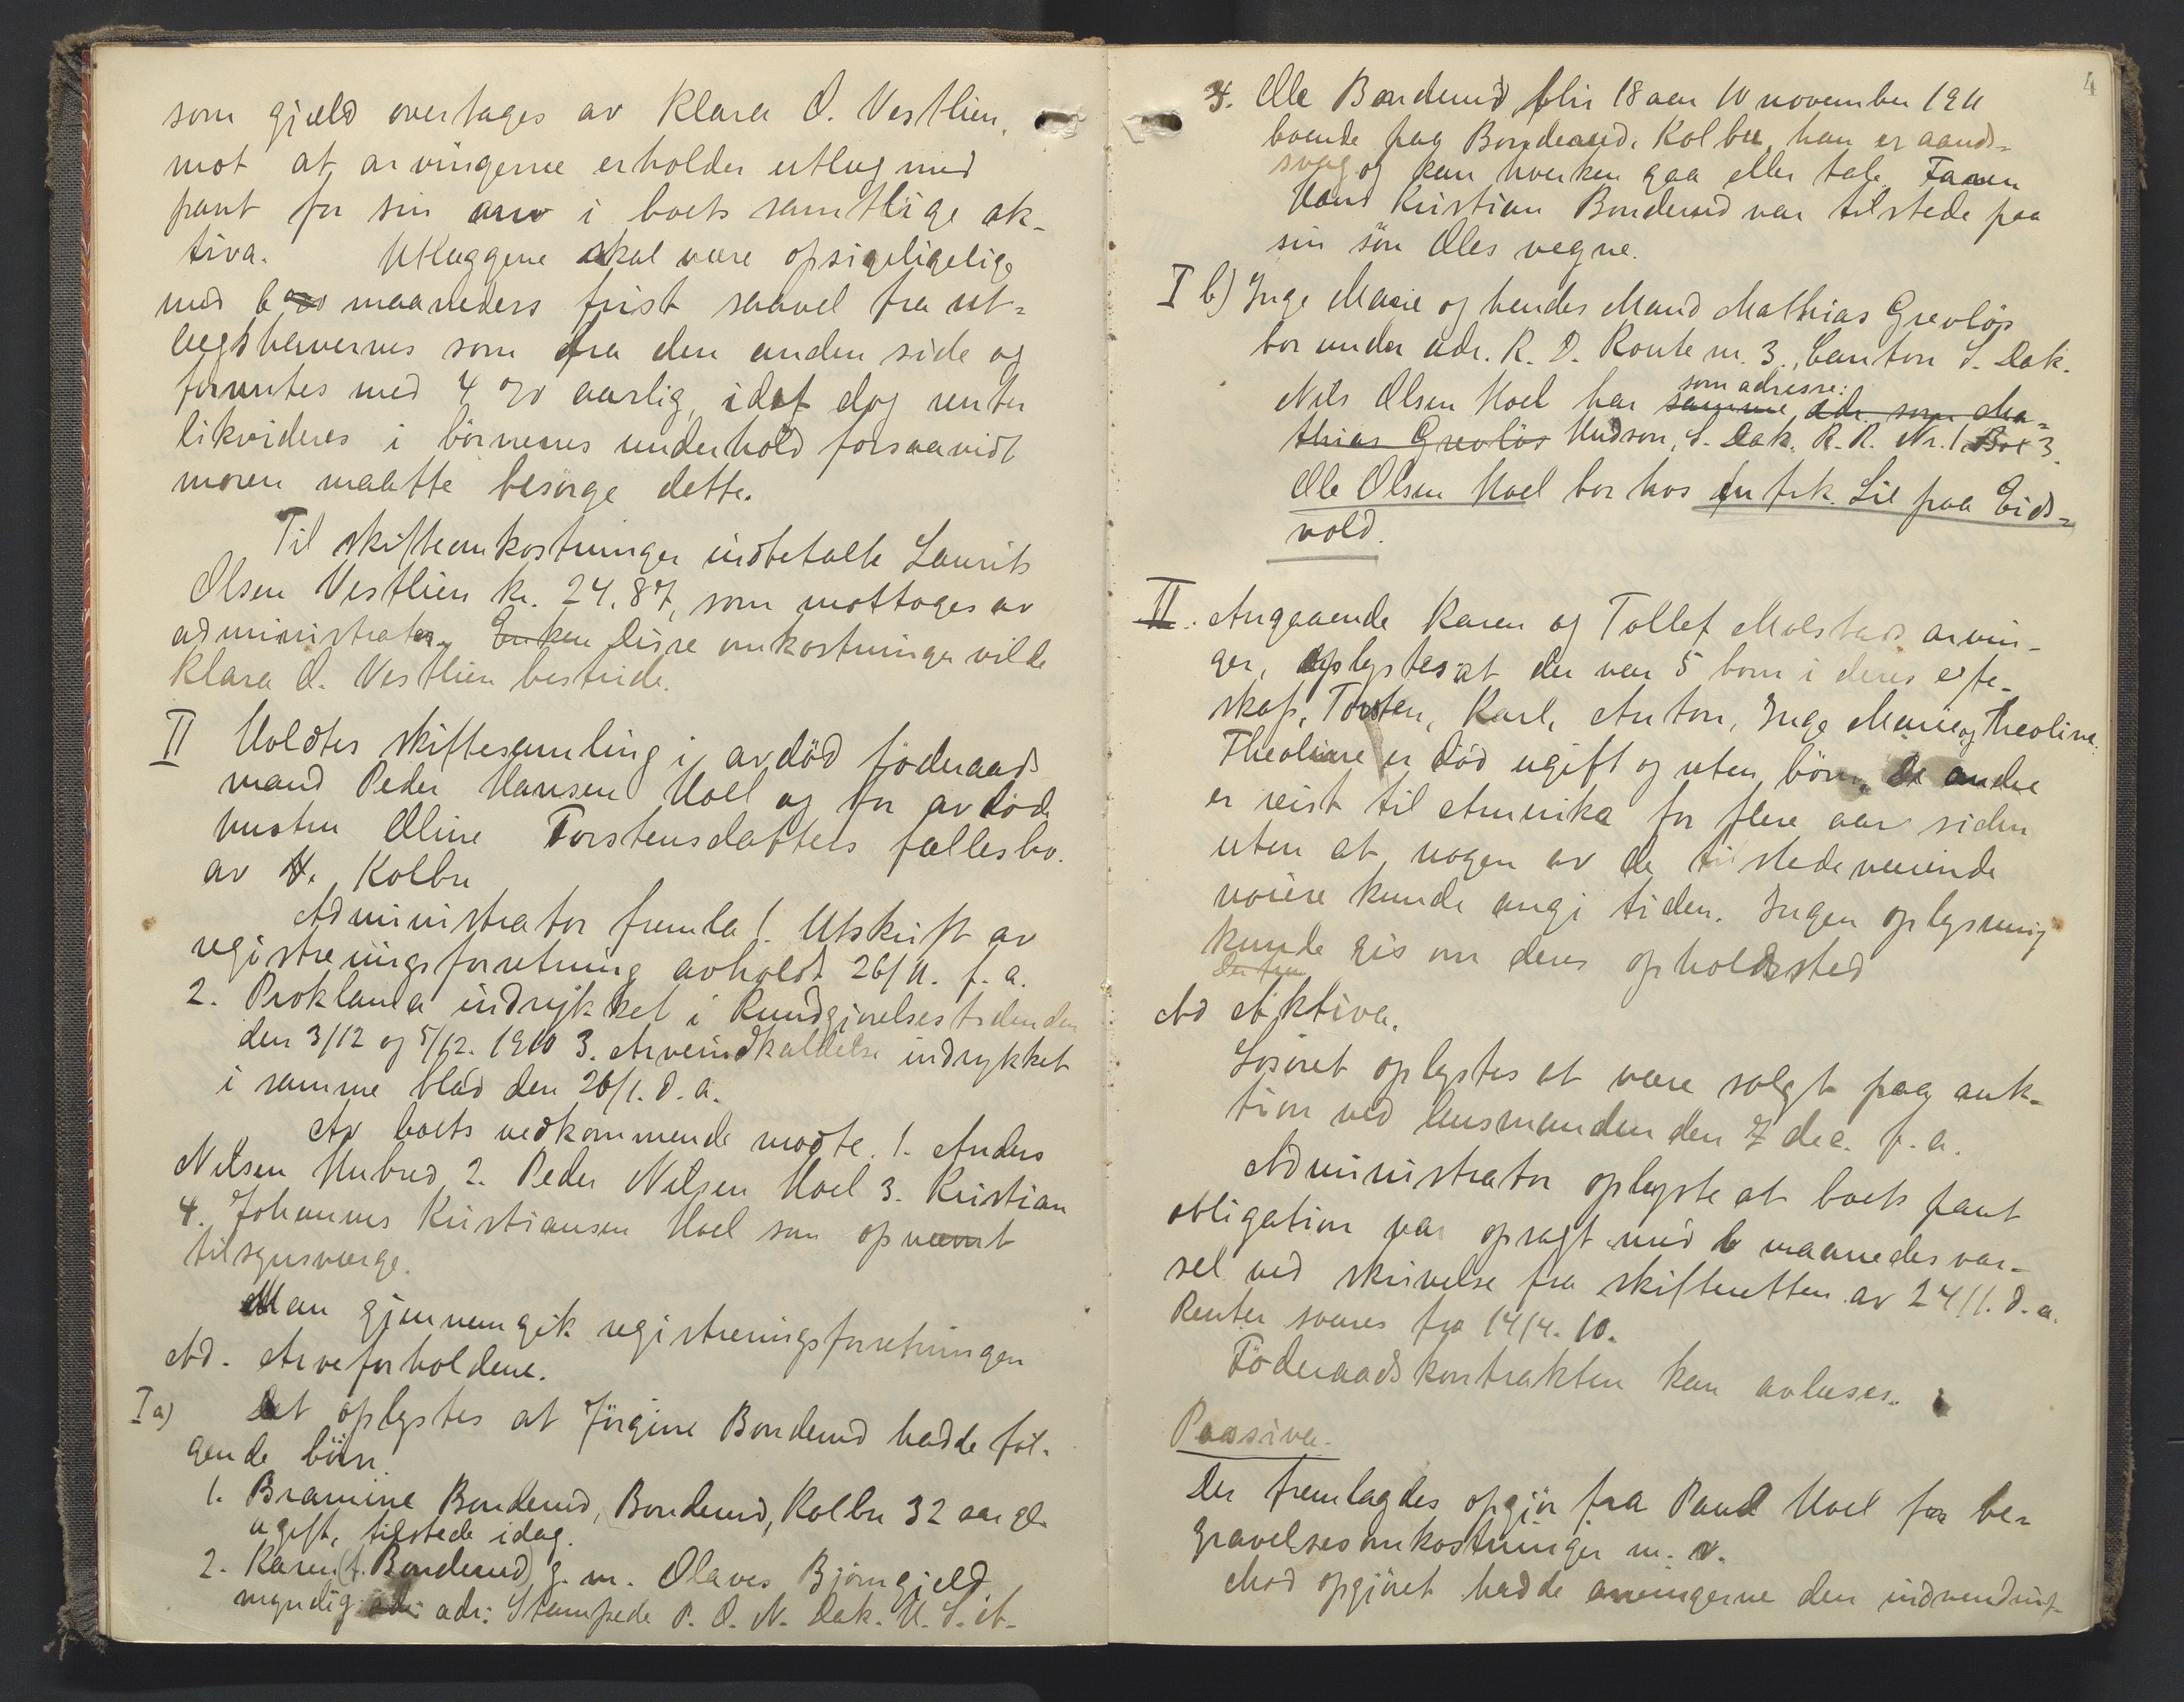 som gjeld overtages av Klara O. Vestlien,
mot at arvingerne erholder utlæg med
pant for sin arv i boets samtlige ak-
tiva. Utlæggene skal være opsigeligelige
med 6 maaneders frist saavel fra ut-
lægshavernes som fra den anden side og
forrentes med 4 % aarlig, idet dog renter
likvideres i börnenes underhold forsaavidt
moren maatte besörge dette.
Til skifteomkostninger indbetalte Laurits
Olsen Vestlien kr. 24.87, som mottoges av
administrator. Enken Disse omkostninger vilde
Klara O. Vestlien bestride.
II Holdtes skiftesamling i avdöd föderaads
mand Peder Hansen Hoel og for avdöde
hustru Oline Torstensdatters fællesbo.
av V. Kolbu
Administrator fremla 1. Utskrift av
registreringsforretning avholdt 26/11. f. a.
2. Proklama indrykket i Kundgjörelsestidenden
den 3/12 og 5/12. 1910 3. Arveindkaldelse indrykket
i samme blad den 26/1. d. a.
Av boets vedkommende mödte. 1. Anders
Nilsen Hubred 2. Peder Nilsen Hoel 3. Kristian
4. Johannes Kristiansen Hoel som opnævnt
tilsynsværge.
Man gjennemgik registreringsforretningen
Ad. Arveforholdene.
I a) Det oplystes at Jörgine Bonderud hadde föl-
gende börn.
1. Bramine Bonderud, Bonderud, Kolbu 32 aar gl.
ugift, tilstede idag.
2. Karen (f. Bonderud) g. m. Olaves Björngjeld
myndig adr: Stampede P. O. N. Dak. U. S. A.
4
3. Ole Bonderud blir 18 aar 10 november 1911
boende paa Bonderud, Kolbu, han er aands-
svag og kan hverken gaa eller tale. Faren
Hans Kristian Bonderud var tilstede paa
sin sön Oles vegne.
I b) Inge Marie og hendes Mand Mathias Grevlös
bor under adr. R. D. Route nr. 3., Canton S. Dak.
som adresse:
Nils Olsen Hoel har samme adr. som Ma-
thias Grevlös Hudson, S. Dak. R. R. Nr. 1 Box 3.
Ole Olsen Hoel bor hos en frk. Lie paa Eids-
vold.
II. Angaaende Karen og Tollef Molstads arvin-
ger, oplystes at der var 5 barn i deres ekte-
skap, Torsten, Karl, Anton, Inge Marie og Theoline.
Theoline er död ugift og uten börn. De andre
er reist til Amerika for flere aar siden
uten at nogen av de tilstedeværende
nöiere kunde angi tiden. Ingen oplysning
kunde gis om deres opholdssted
Der fra
Ad Aktiva.
Lösöret oplystes at være solgt paa auk-
tion ved lensmanden den 7 dec. f. a.
Administrator oplyste at boets pant
obligation var opsagt med 6 maaneders var-
sel ved skrivelse fra skifteretten av 24/1. d. a.
Renter svares fra 14/4. 10.
Föderaadskontrakten kan avlæses.
Passiva.
Der fremlagdes opgjör fra Paul Hoel for be-
gravelsesomkostninger m. v.
Mod opgjöret hadde arvingerne den indvending